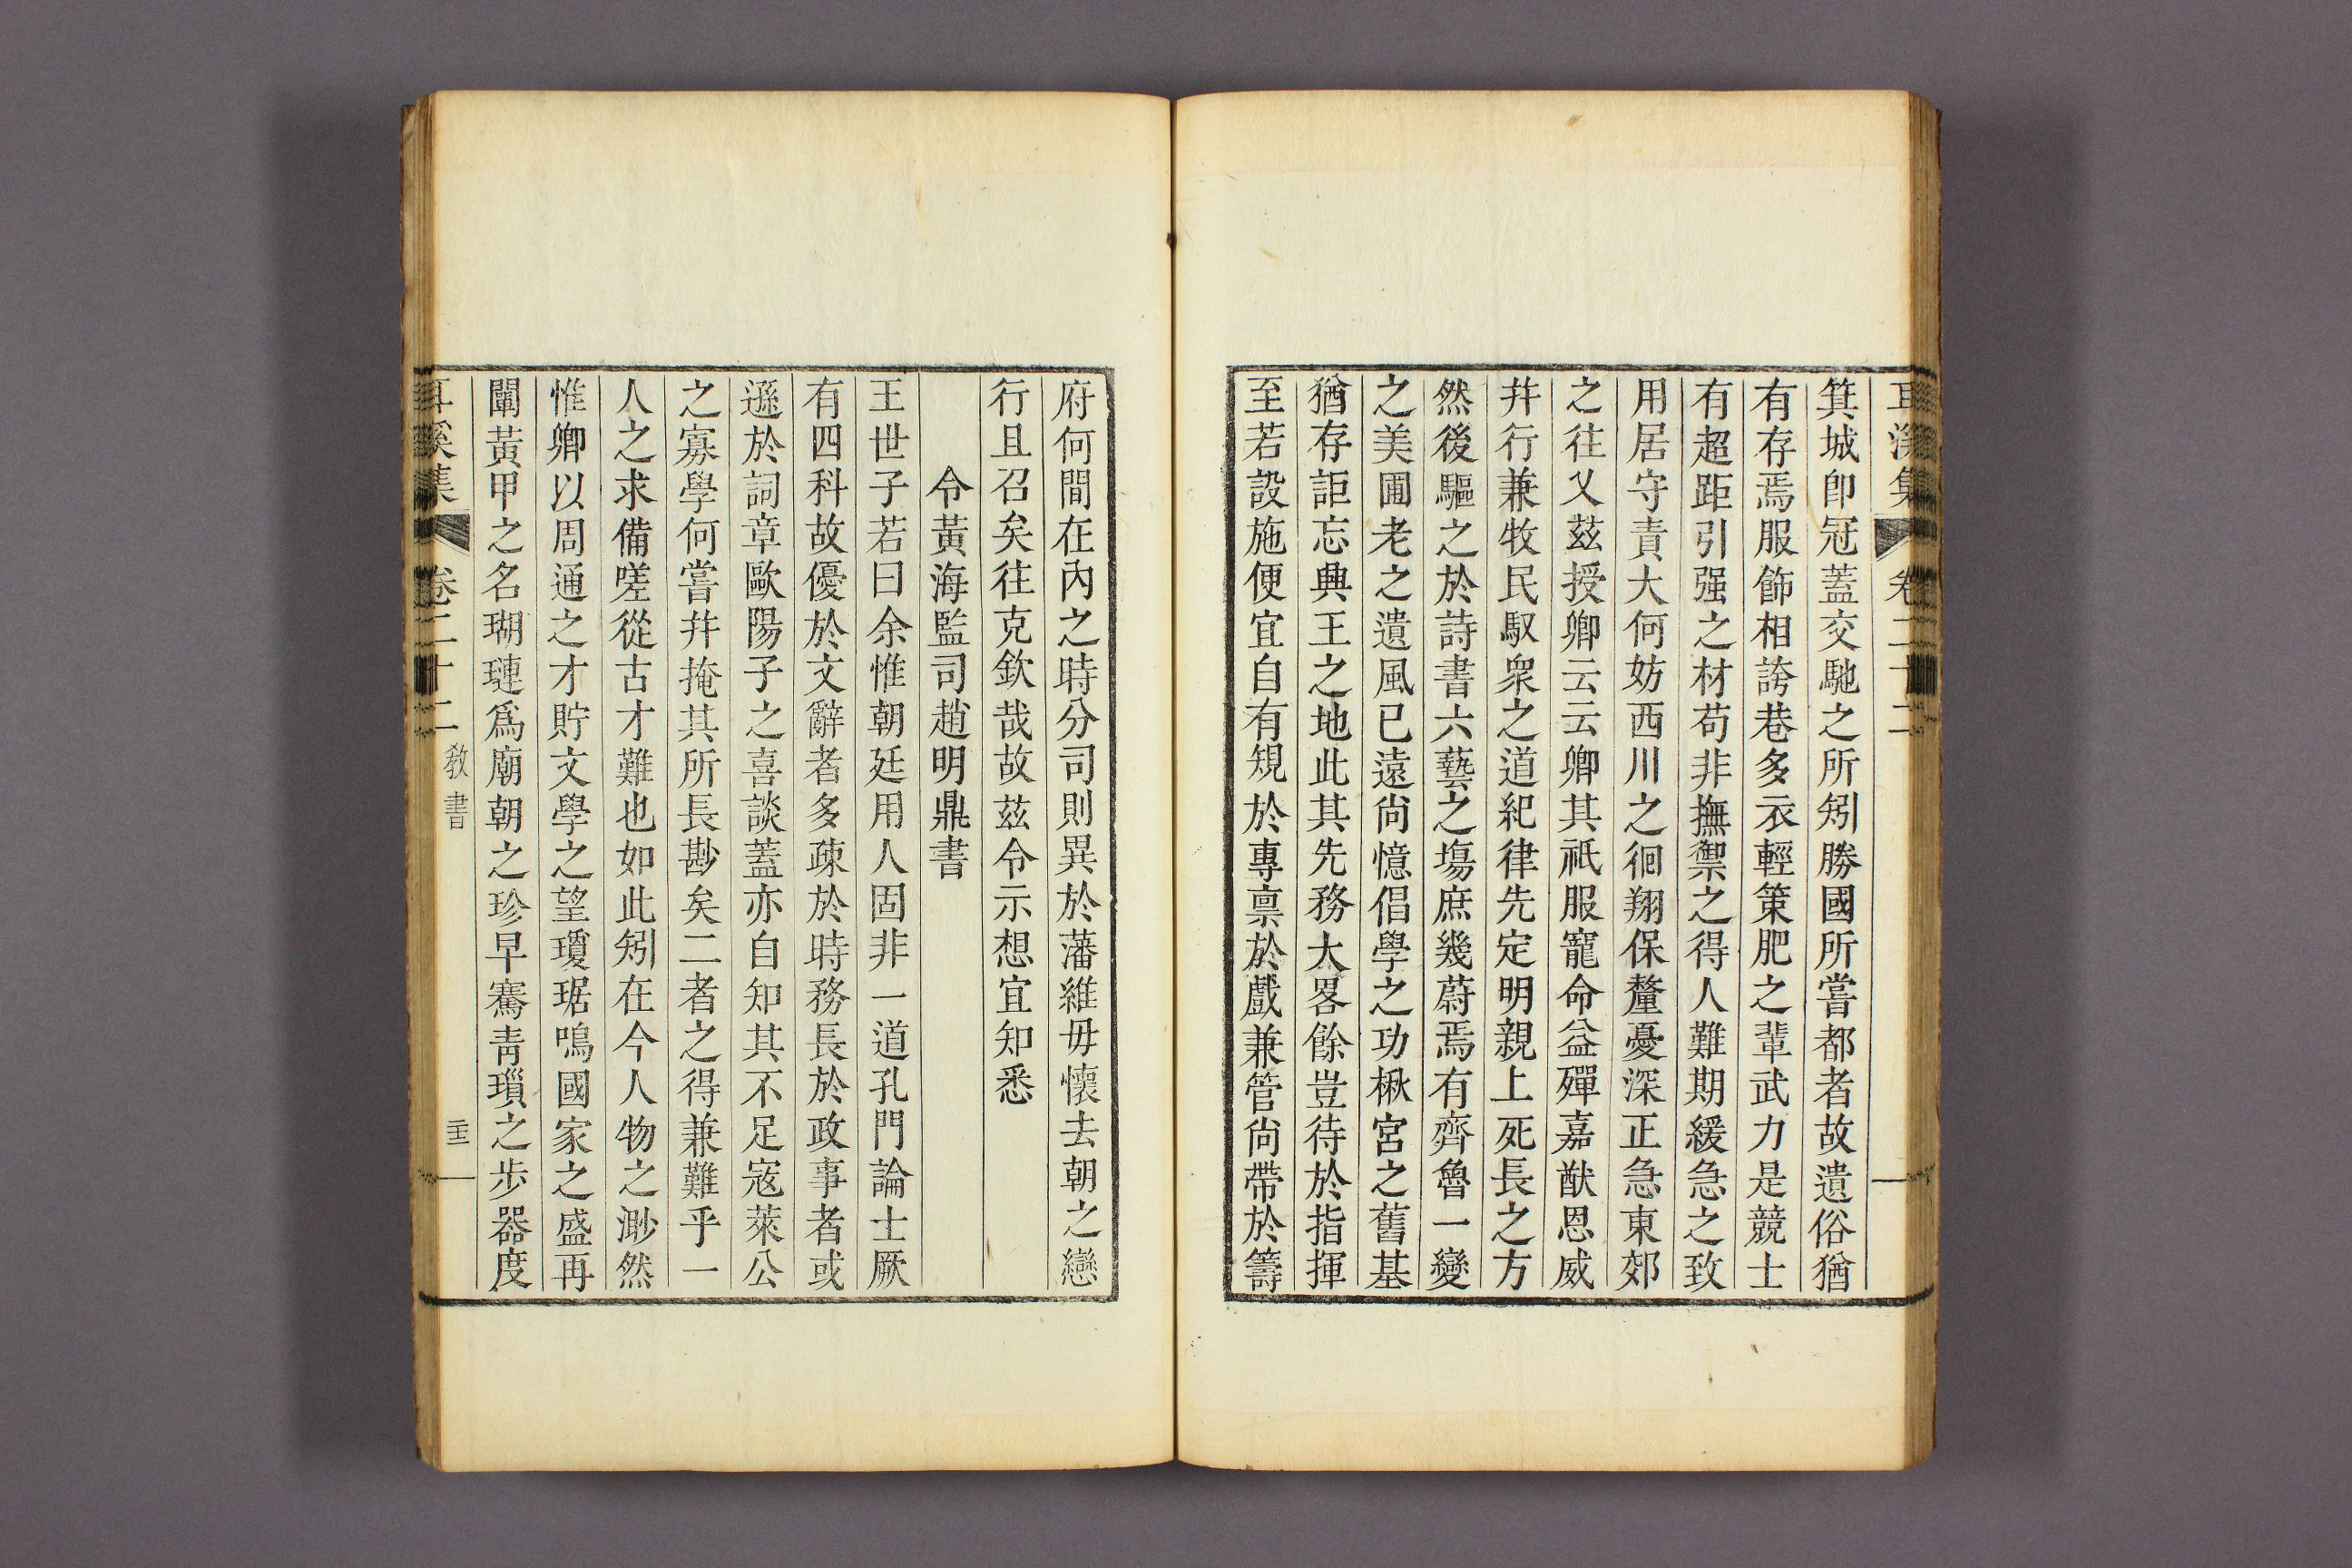 耳溪集 卷二十二
箕城卽冠蓋交馳之所矧勝國所嘗都者故遺俗猶
有存焉服飾相誇巷多衣輕策肥之輩武力是競士
有超距引强之材苟非撫禦之得人難期緩急之致
用居守責大何妨西川之徊翔保釐憂深正急東郊
之往乂玆授卿云云卿其祇服寵命益殫嘉猷恩威
幷行兼牧民馭衆之道紀律先定明親上死長之方
然後驅之於詩書六藝之塲庶幾蔚焉有齊魯一變
之美圃老之遺風已遠尙憶倡學之功楸宮之舊基
猶存詎忘典王之地此其先務大畧餘豈待於指揮
至若設施便宜自有規於專禀於戲兼管尙帶於籌
府何間在內之時分司則異於藩維毋懷去朝之戀
行且召矣往克欽哉故玆令示想宜知悉
令黃海監司趙明鼎書
王世子若曰余惟朝廷用人固非一道孔門論士厥
有四科故優於文辭者多疎於時務長於政事者或
遜於詞章歐陽子之喜談蓋亦自知其不足寇萊公
之寡學何嘗幷掩其所長尠矣二者之得兼難乎一
人之求備嗟從古才難也如此矧在今人物之渺然
惟卿以周通之才貯文學之望瓊琚鳴國家之盛再
闡黃甲之名瑚璉爲廟朝之珍早騫靑瑣之步器度
耳溪集 卷二十二 敎書 二十三